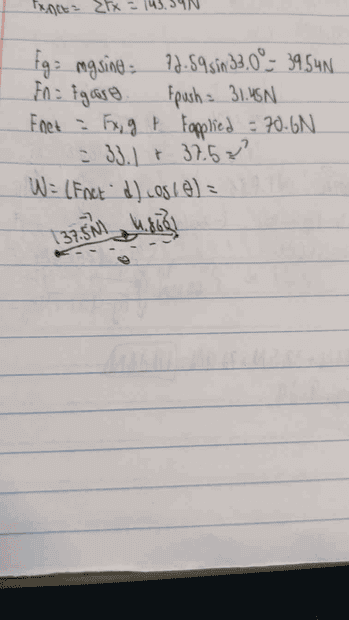 Fxnet = ΣFx = 143.59N
Fg = mgsinθ = 72.59sin33.0° = 39.54N
Fn = Fgcosθ Fpush = 31.45N
Fnet = Fx,g + Fapplied = 70.6N
= 33.1 + 37.5 = ?
W = (Fnet · d) cos(θ) =
(37.5N) 4.86
θ